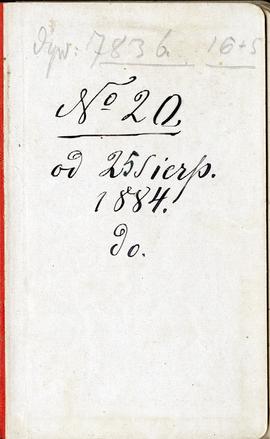 Dyw: 783 b. 16+5
No 20.
od 25 Sierp.
1884.
do.